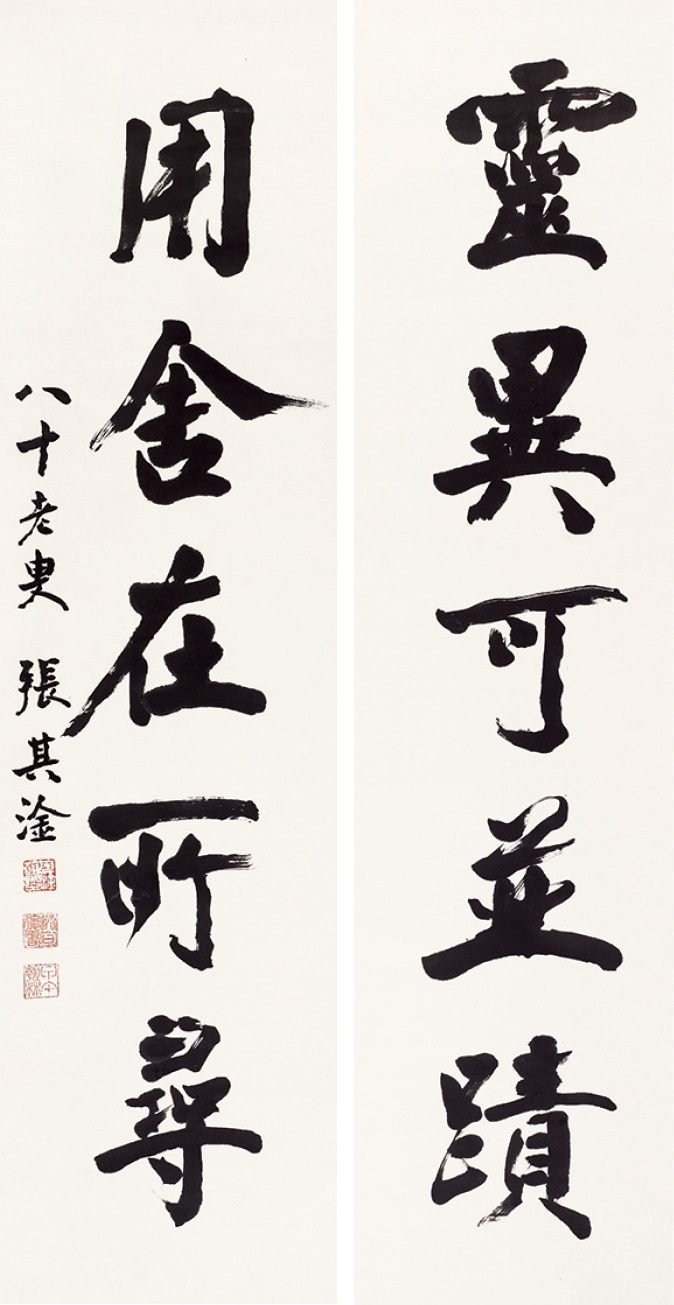 靈異可並蹟
用舍在所尋
八十老叟 張其淦